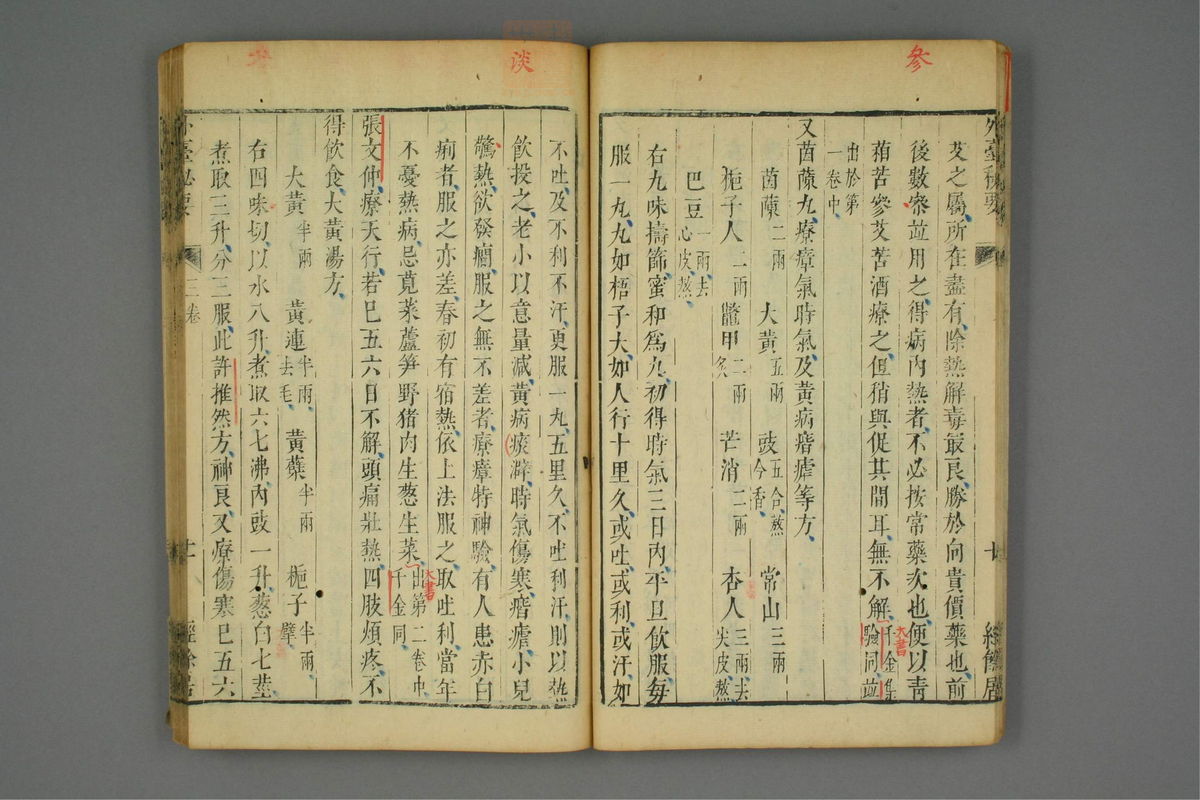 參
艾之屬所在盡有除熱解毒最良勝於向貴價藥也前
後數衆並用之得病內熱者不必按常藥次也便以青
葙苦參艾苦酒療之但稍與促其間耳無不解千金集
驗同並
大書
出於第
一卷中
又茵蔯丸療瘴氣時氣及黃病痎瘧等方
茵蔯二兩 大黃五兩 豉五合熬令香 常山三兩
梔子人二兩 鼈甲二兩炙 芒消二兩 杏人三兩去尖皮熬
巴豆一兩去心皮熬
右九味擣篩蜜和爲丸初得時氣三日內平旦飲服每
服一丸丸如梧子大如人行十里久或吐或利或汗如
談
不吐及不利不汗更服一丸五里久不吐利汗則以熱
飲投之老小以意量減黃病痰澼時氣傷寒痎瘧小兒
驚熱欲發癇服之無不差者療瘴特神驗有人患赤白
痢者服之亦差春初有宿熱依上法服之取吐利當年
不憂熱病忌莧菜蘆笋野猪肉生葱生菜出第二卷中
千金同
大書
張文仲療天行若巳五六日不解頭痛壯熱四肢煩疼不
得飲食大黃湯方
大黃半兩 黃連半兩去毛 黃蘗半兩 梔子半兩擘
右四味切以水八升煮取六七沸內豉一升葱白七莖
煮取三升分三服此許推然方神良又療傷寒巳五六
三卷